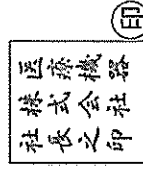 印
医療機器
株式会社
社長之印